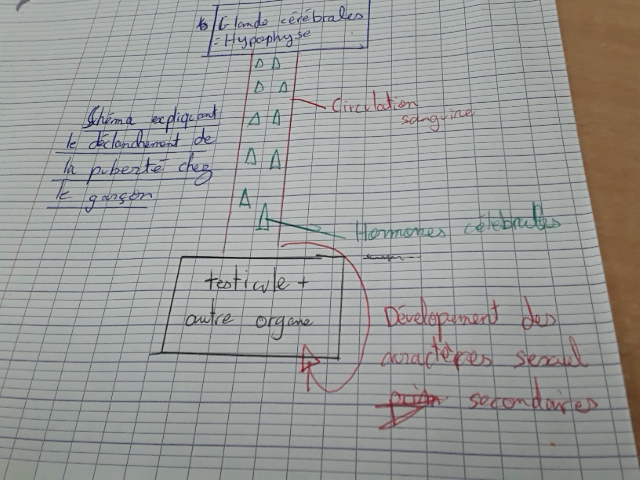 Glande cérébrales
= Hypophyse
Circulation
sanguine
Schéma expliquant
le déclanchement de
la puberté chez
le garçon
Hormones célébrales
testicule +
autre organe
Dévelopement des
caractères sexuel
secondaires